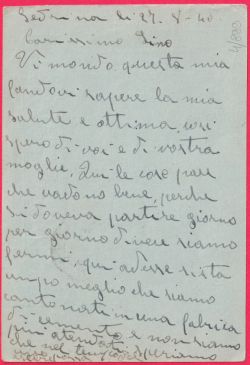 Sedrina li 27. 8 - 40
Carissimo Pino
Vi mando questa mia
facendovi sapere la mia
salute e ottima, così
spero di voi e di vostra
moglie. Qui le cose pare
che vadono bene, perche
si doveva partire giorno
per giorno di vece siamo
fermi, qui adesso si sta
un po meglio che siamo
cantonati in una fabrica
di cemento e non siamo
più atendati
che nel tempo speriamo